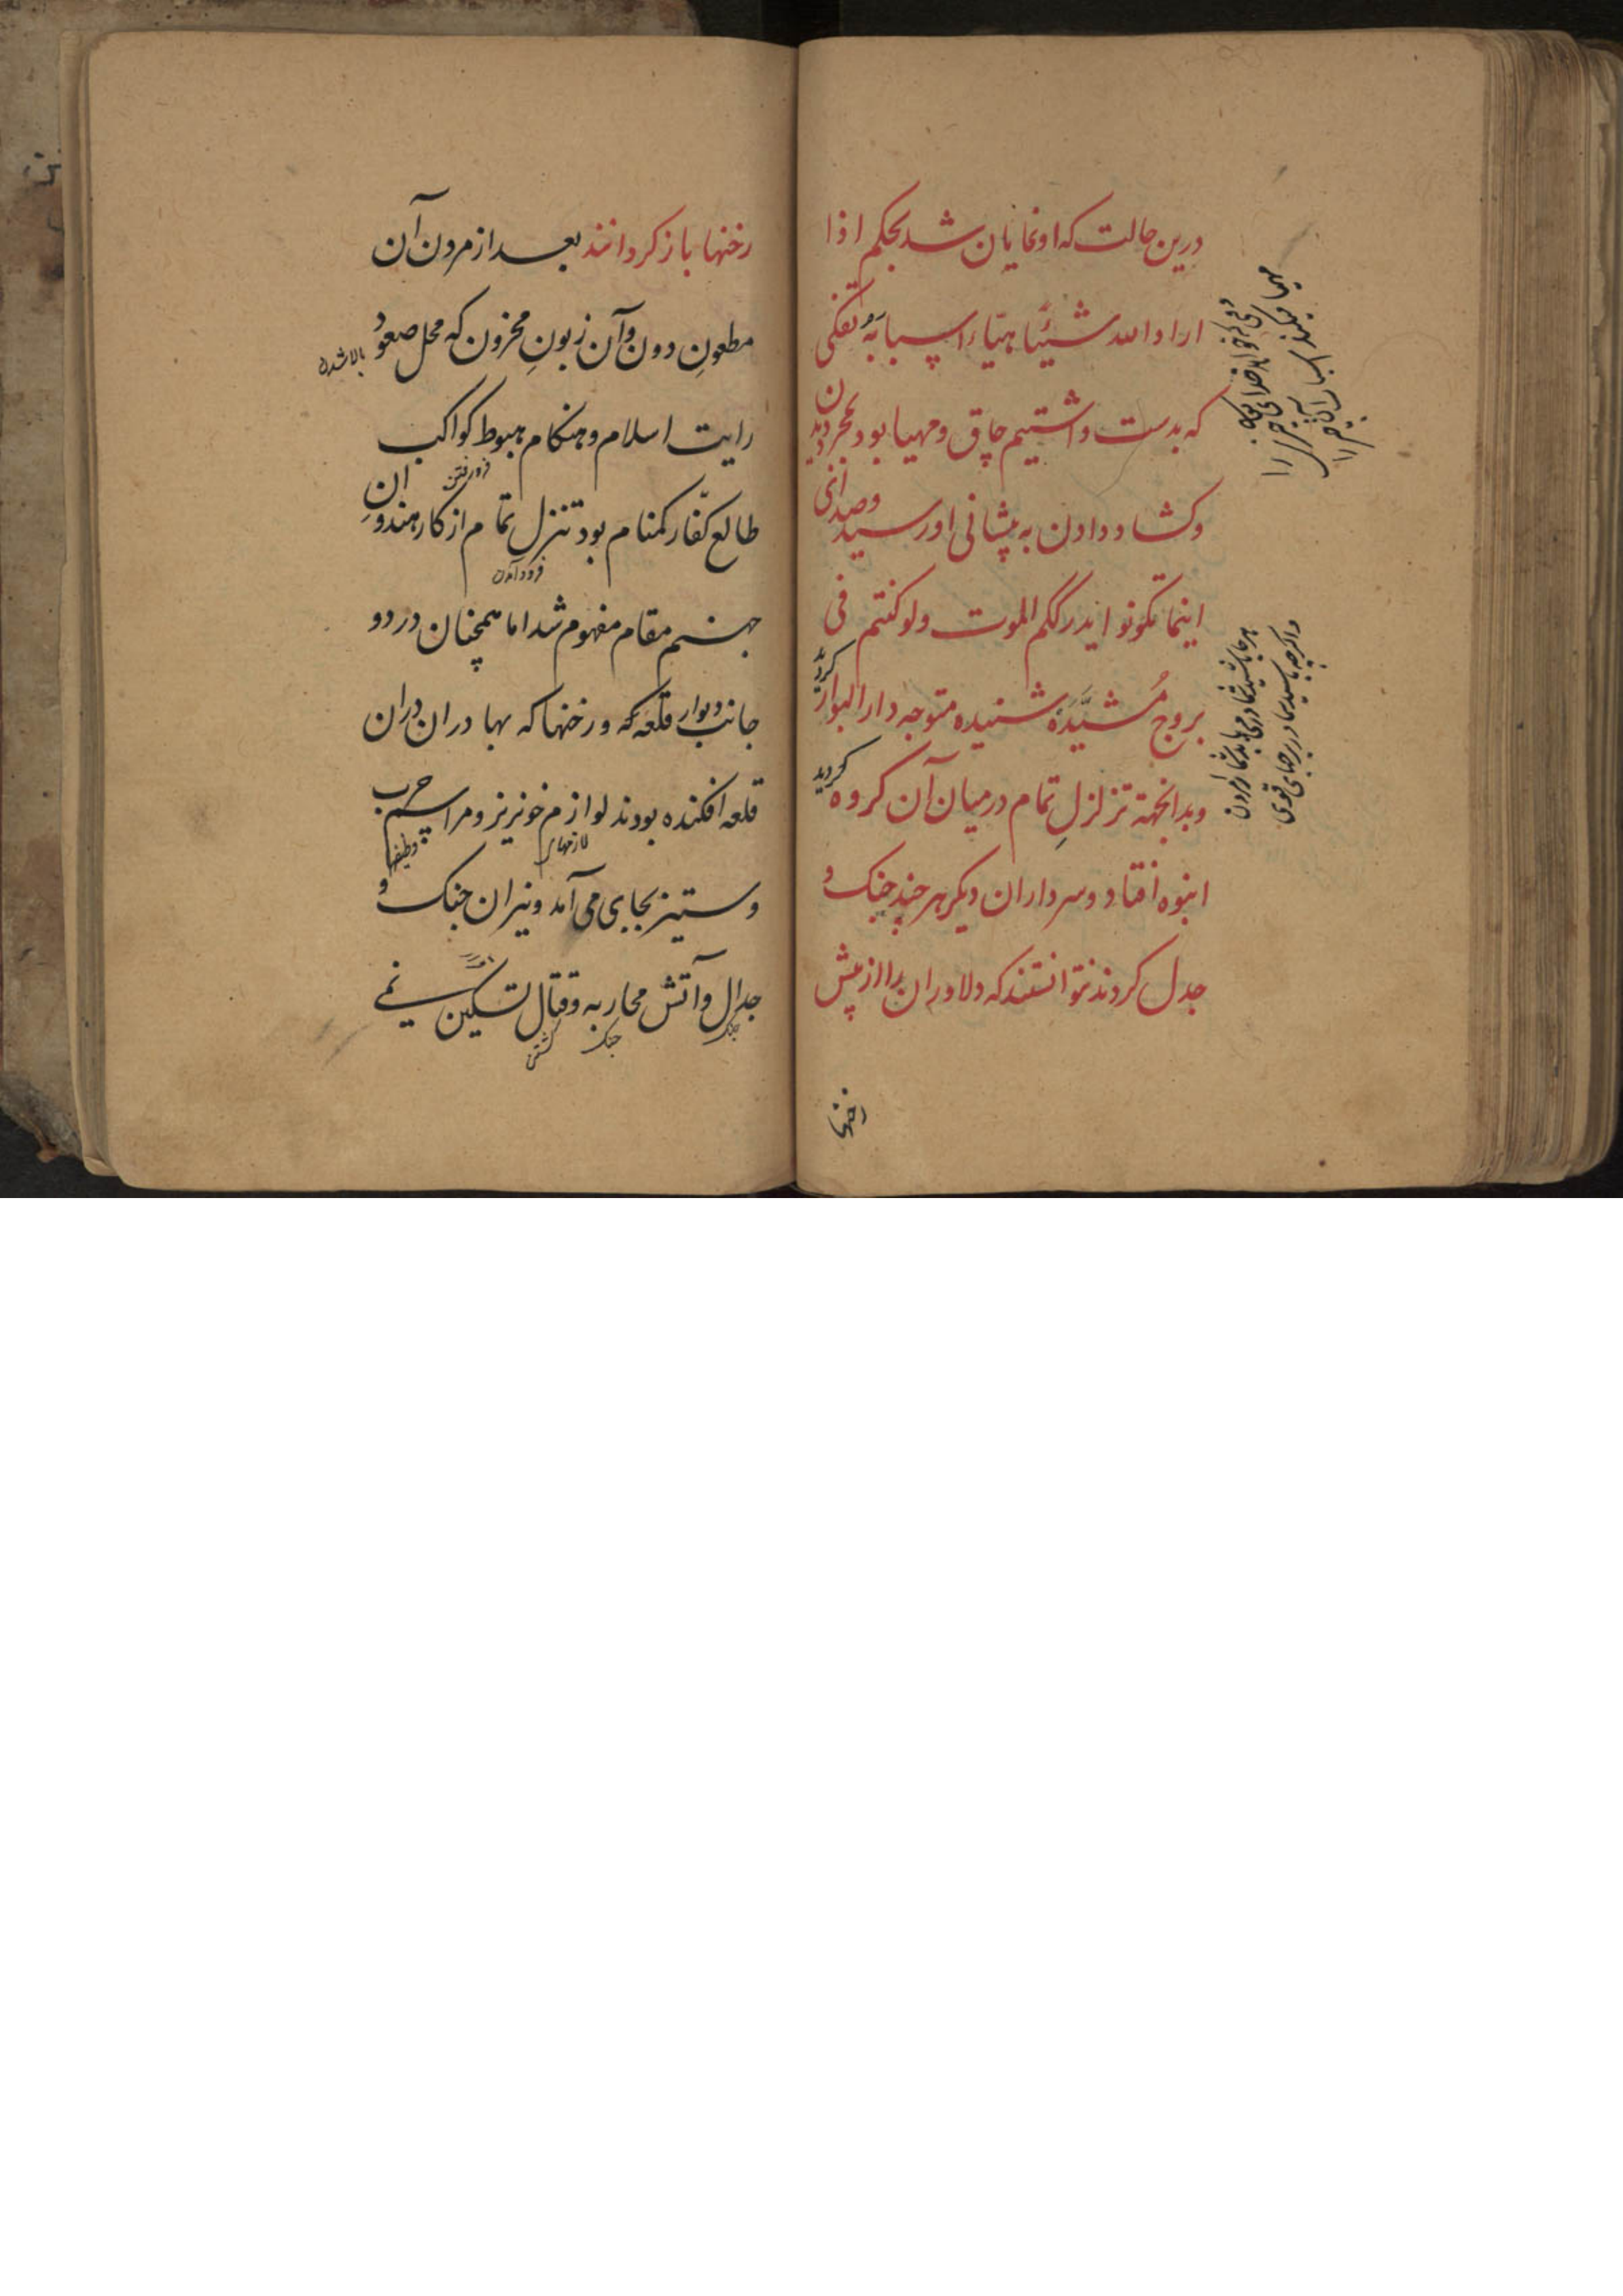 درین حالت که او نمایان شد بحکم اذا
اراد الله شیئًا هیّاء اسبابهُ تفنکی
که بدست داشتیم چاق و مهیا بود بمجرد دیدن
و کشاد دادن به پیشانی او رسید و صدای
اینما تکونوا یدرککم الموت ولو کنتم فی
بروج مُشَیَّدَه شنیده متوجه دار البوار کردید
و بدانجهة تزلزلِ تمام در میان آن کروه
انبوه افتاد و سرداران دیکر هر چند جنک و
جدل کردند نتوانستند که دلاوران را از پیش
رخنها
رخنها باز کردانند بعد از مردن آن
مطعونِ دون و آن زبونِ محزون که محل صعود
بالا شدن
رایت اسلام و هنکام هبوط کواکب
فرو رفتن
طالع کفّار کمنام بود تنزل تمام از کار هندوانِ
فرود آمدن
جهنم مقام مفهوم شد اما همچنان در دو
جانب دیوار قلعه که و رخنها که بهادران دران
قلعه افکنده بودند لوازم خونریز و مراسم حرب
لازمهای
وظیفها
و ستیز بجای می آمد و نیران جنک و
جدال و آتش محاربه و قتال تسکین نمے
جنک
جنک
کشتن